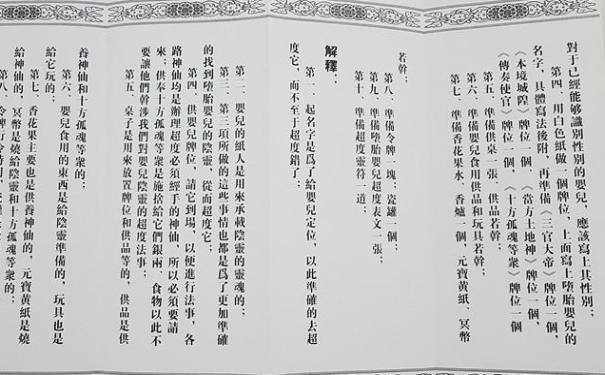 對于已經能够識别性别的嬰兒，應該寫上其性别；
第四、用白色紙做一個牌位，上面寫上墮胎嬰兒的
名字，具體寫法後附，再準備《三官大帝》牌位一個，
《本境城隍》牌位一個，《當方土地神》牌位一個，
《傳奏使官》牌位一個，《十方孤魂等衆》牌位一個
第五、準備供桌一張、供品若幹；
第六、準備嬰兒食用供品和玩具若幹；
第七、準備香花果水、香爐一個，元寶黄紙、冥幣
若幹；
第八、準備令牌一塊；瓷罐一個；
第九、準備墮胎嬰兒超度表文一張；
第十、準備超度靈符一道；
解釋：
第一、起名字是爲了給嬰兒定位，以此準確的去超
度它，而不至于超度錯了；
第二、嬰兒的紙人是用來承載陰靈的靈魂的；
第三、第三項所做的這些事情也都是爲了更加準確
的找到墮胎嬰兒的陰靈，從而超度它；
第四、供嬰兒牌位，請它到場，以便進行法事，各
路神仙均是辦理超度必須經手的神仙，所以必須要請
來；供奉十方孤魂等衆是施捨給它們銀兩、食物以此不
要讓他們幹涉我們對嬰兒陰靈的超度法事；
第五、桌子是用來放置牌位和供品等的，供品是供
養神仙和十方孤魂等衆的；
第六、嬰兒食用的東西是給陰靈準備的，玩具也是
給它玩的；
第七、香花果主要也是供養神仙的，元寶黄紙是燒
給神仙的，冥幣是燒給陰靈和十方孤魂等衆的；
第八、令牌